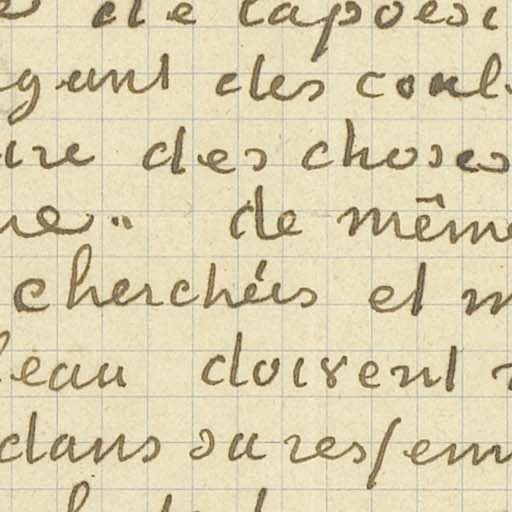 de lapoési
geant des coul
ire des choses
ue" de même
cherchées et m
leau doivent
dans sa ressem